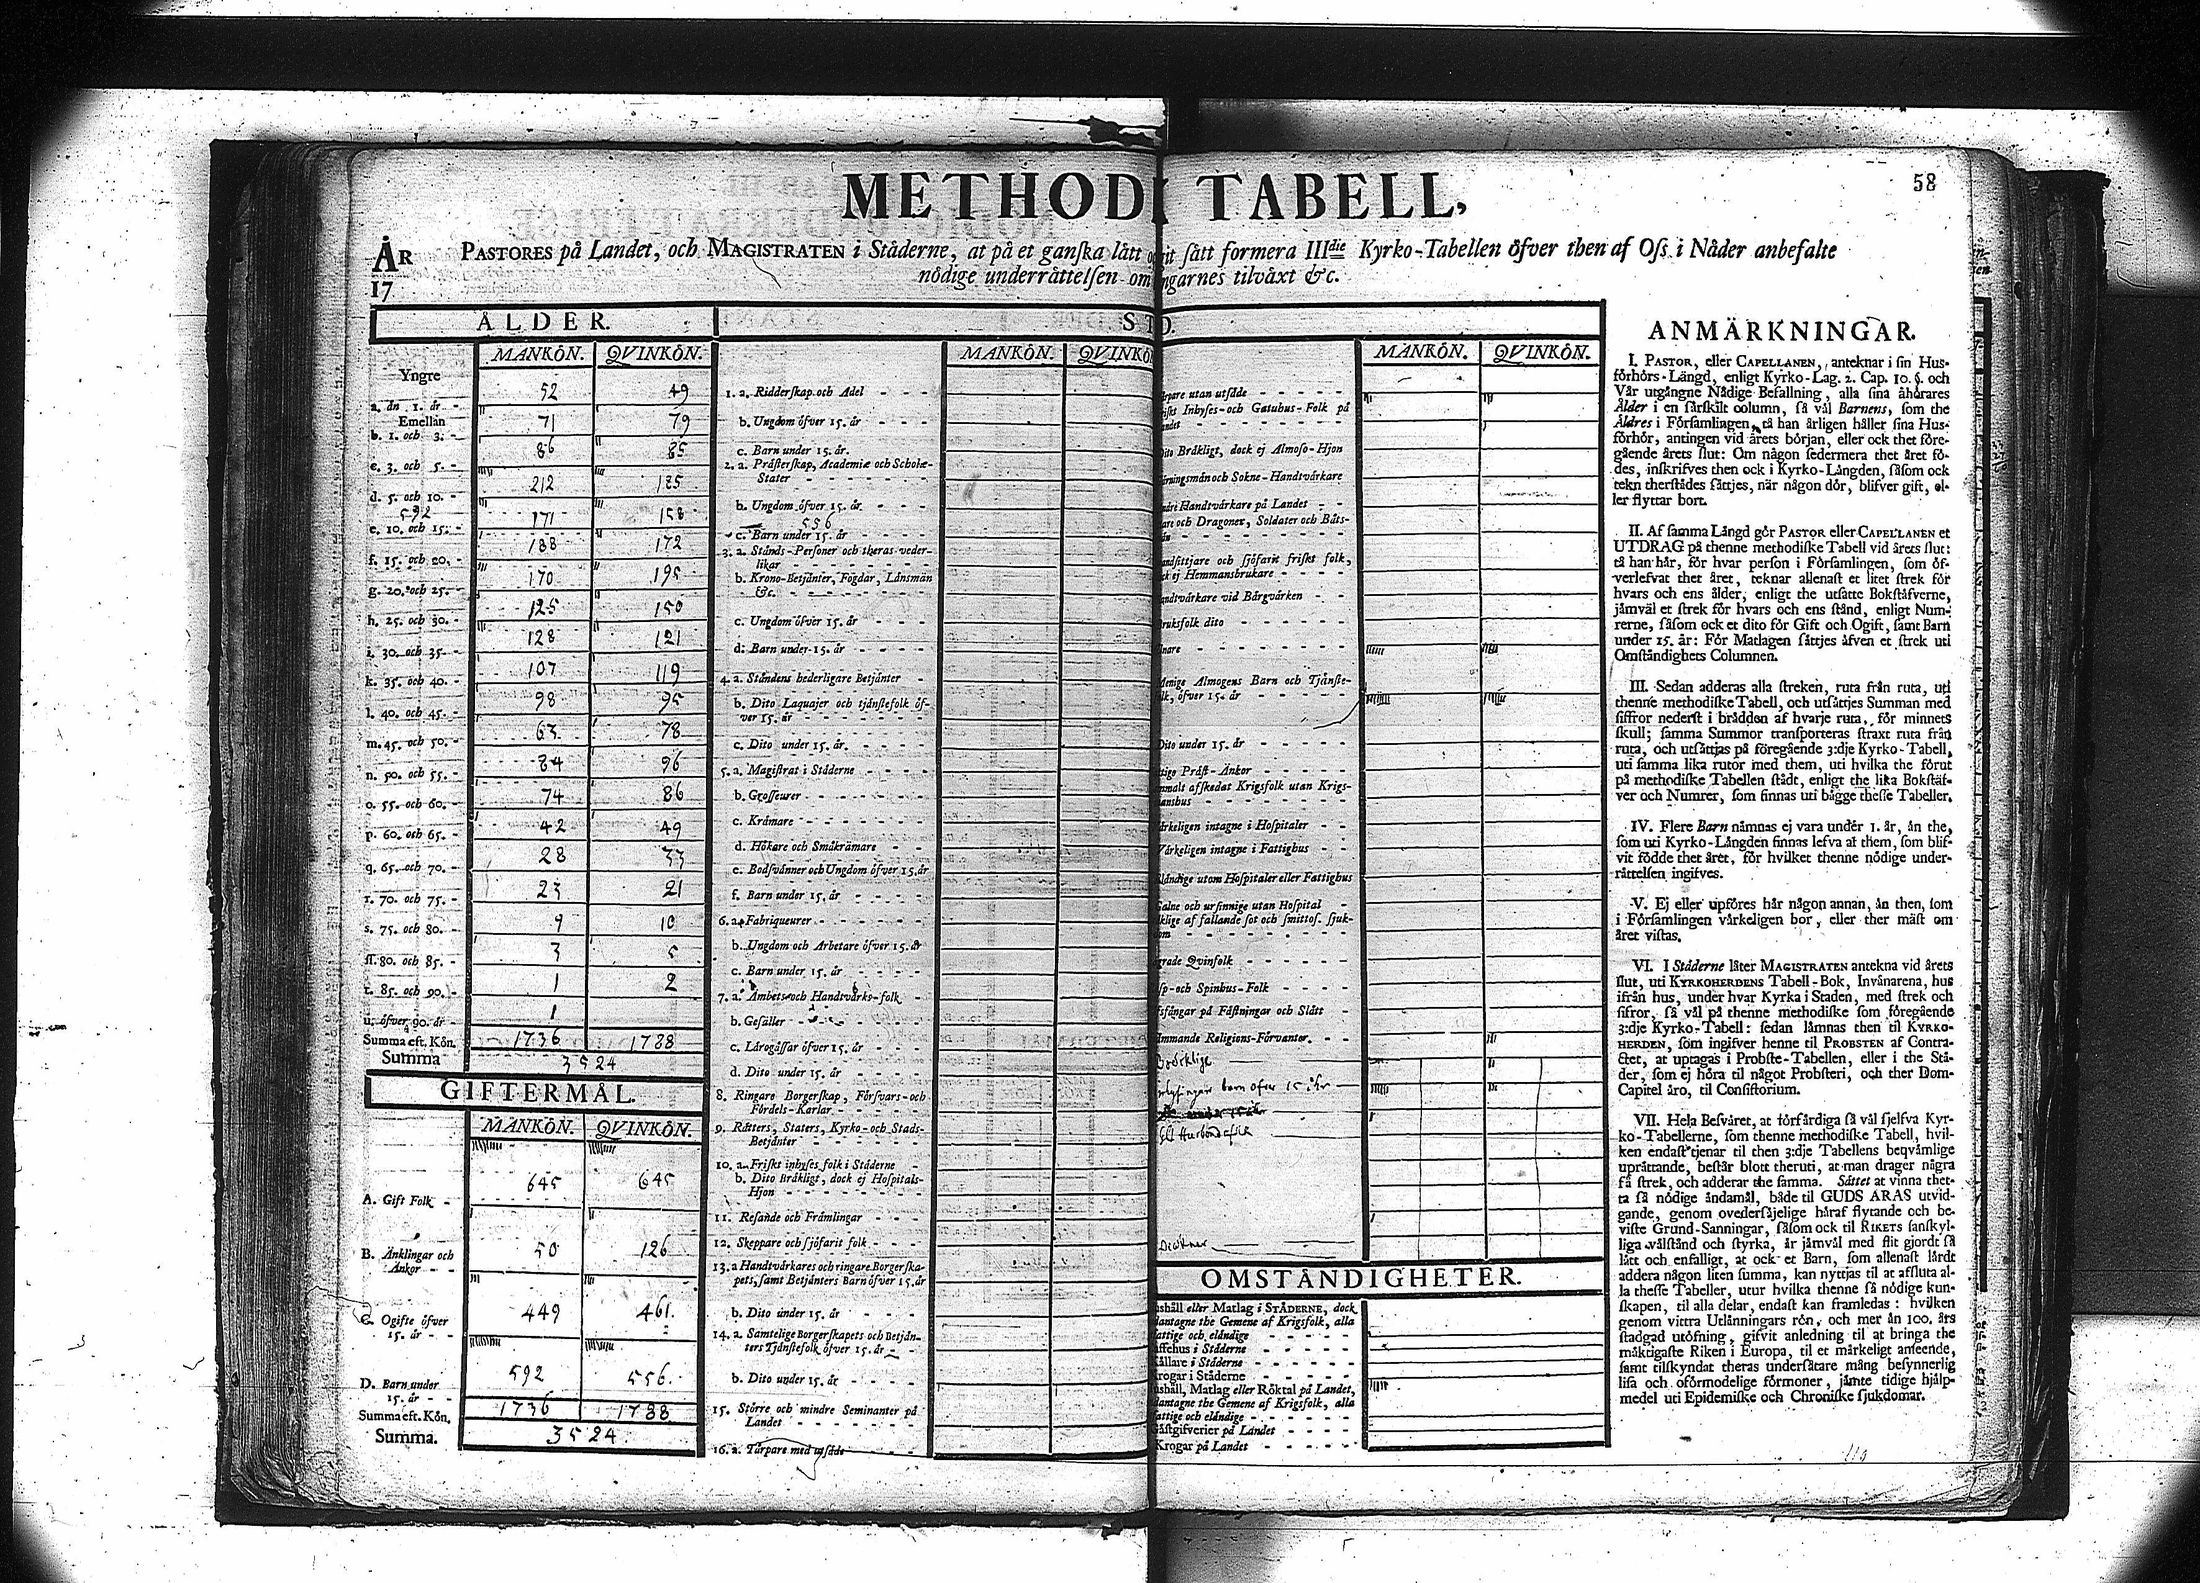 58
METHODI TABELL,
ÅR PASTORES på Landet, och MAGISTRATEN i Ståderne, at på et ganſka lätt ſått formera IIIdie Kyrko-Tabellen öfver then af Oſs i Nåder anbefalte
17 nödige underråttelſen om ngarnes tilväxt &c.
ÅLDER.
MANKÖN. QVINKÖN.
Yngre
a. ån 1. år 52 49
Emellan
b. 1. och 3. 71 79
c. 3. och 5. 86 85
d. 5. och 10. 212 185
592
e. 10. och 15. 171 158
f. 15. och 20. 188 172
g. 20. och 25. 170 195
h. 25. och 30. 125 150
i. 30. och 35. 128 121
k. 35. och 40. 107 119
l. 40. och 45. 98 95
m. 45. och 50. 63 78
n. 50. och 55. 84 96
o. 55. och 60. 74 86
p. 60. och 65. 42 49
q. 65. och 70. 28 33
r. 70. och 75. 23 21
s. 75. och 80. 9 10
ſſ. 80. och 85. 3 5
t. 85. och 90. 1 2
u. öfver 90. år 1
Summa eft. Kön. 1736 1788
Summa 3524
GIFTERMÅL.
MANKÖN. QVINKÖN.
A. Gift Folk 645 645
B. Änklingar och
Änkor 50 126
C. Ogifte öfver
15. år 449 461
D. Barn under
15. år 592 556
Summa eft. Kön. 1736 1788
Summa. 3524
MANKÖN. QVINKÖN
1. a. Ridderſkap och Adel
b. Ungdom öfver 15. år
c. Barn under 15. år.
2. a. Präſterſkap, Academiæ och Scholæ-
Stater
b. Ungdom öfver 15. år
556
c. Barn under 15. år
3. a. Stånds-Perſoner och theras veder-
likar
b. Krono-Betjänter, Fogdar, Länsmän
&c.
c. Ungdom öfver 15. år
d. Barn under 15. år
4. a. Ståndens hederligare Betjänter
b. Dito Laquajer och tjänſtefolk öf-
ver 15. år
c. Dito under 15. år.
5. a. Magiſtrat i Ståderne
b. Groſſeurer
c. Krämare
d. Hökare och Småkrämare
e. Bodſvänner och Ungdom öfver 15. år
f. Barn under 15. år
6. a. Fabriqueurer
b. Ungdom och Arbetare öfver 15. år
c. Barn under 15. år
7. a. Ämbets-och Handtvärks-folk
b. Geſäller
c. Lärogåſſar öfver 15. år
d. Dito under 15. år
8. Ringare Borgerſkap, Förſvars-och
Fördels-Karlar
9. Rätters, Staters, Kyrko-och Stads-
Betjänter
10. a. Friſkt inhyſes folk i Ståderne
b. Dito Bräkligt, dock ej Hoſpitals-
Hjon
11. Reſande och Främlingar
12. Skeppare och ſjöfarit folk
13. a Handtvärkares och ringare Borgerſka-
pets, ſamt Betjänters Barn öfver 15. år
b. Dito under 15. år
14. a. Samtelige Borgerſkapets och Betjän-
ters Tjänſtefolk öfver 15. år
b. Dito under 15. år
15. Större och mindre Seminanter på
Landet
16. a. Tårpare med utſäde
MANKÖN. QVINKÖN.
pare utan utſäde
Inhyſes-och Gatuhus-Folk på
Bräkligt, dock ej Almoſo-Hjon
ningsmän och Sokne-Handtvärkare
Handtvärkare på Landet
och Dragoner, Soldater och Båts-
ſittjare och ſjöfarit friſkt folk,
ej Hemmansbrukare
andtvärkare vid Bärgvärken
ruksfolk dito
Menige Almogens Barn och Tjänſte-
folk, öfver 15. år
Dito under 15. år
Präſt-Änkor
afſkedat Krigsfolk utan Krigs-
manshus
Värkeligen intagne i Hoſpitaler
Värkeligen intagne i Fattighus
Eländige utom Hoſpitaler eller Fattighus
Galne och urſinnige utan Hoſpital
af fallande ſot och ſmittoſ. ſjuk-
Qvinfolk
och Spinhus-Folk
fångar på Fäſtningar och Slått
Religions-Förvanter.
barn öfver 15 åhr
OMSTÅNDIGHETER.
Hushåll eller Matlag i STÅDERNE, dock
undantagne the Gemene af Krigsfolk, alla
fattige och eländige
Caffehus i Ståderne
Källare i Ståderne
Krogar i Ståderne
Hushåll, Matlag eller Röktal på Landet,
undantagne the Gemene af Krigsfolk, alla
fattige och eländige
Gåſtgifverier på Landet
Krogar på Landet
ANMÄRKNINGAR.
I. PASTOR, eller CAPELLANEN, anteknar i ſin Hus-
förhörs-Längd, enligt Kyrko-Lag. 2. Cap. 10. §. och
Vår utgångne Nådige Befallning, alla ſina åhörares
Ålder i en ſärſkilt column, få väl Barnens, ſom the
Äldres i Förſamlingen, tå han årligen håller ſina Hus-
förhör, antingen vid årets början, eller ock thet före-
gående årets ſlut: Om någon ſedermera thet året fö-
des, inſkrifves then ock i Kyrko-Längden, ſåſom ock
tekn therſtädes ſättjes, när någon dör, blifver gift, el-
ler flyttar bort.
II. Af ſamma Längd gör PASTOR eller CAPELLANEN et
UTDRAG på thenne methodiſke Tabell vid årets ſlut:
tå han här, för hvar perſon i Förſamlingen, ſom öf-
verlefvat thet året, teknar allenaſt et litet ſtrek för
hvars och ens ålder, enligt the utſatte Bokſtäfverne,
jämväl et ſtrek för hvars och ens ſtånd, enligt Num-
rerne, ſåſom ock et dito för Gift och Ogift, ſamt Barn
under 15. år: För Matlagen ſättjes äfven et ſtrek uti
Omſtändighets Columnen.
III. Sedan adderas alla ſtreken, ruta från ruta, uti
thenne methodiſke Tabell, och utſättjes Summan med
ſiffror nederſt i brädden af hvarje ruta, för minnets
ſkull; ſamma Summor tranſporteras ſtraxt ruta från
ruta, och utſättjas på föregående 3:dje Kyrko-Tabell,
uti ſamma lika rutor med them, uti hvilka the förut
på methodiſke Tabellen ſtådt, enligt the lika Bokſtäf-
ver och Numrer, ſom finnas uti bägge theſſe Tabeller.
IV. Flere Barn nämnas ej vara under 1. år, än the,
ſom uti Kyrko-Längden finnas lefva af them, ſom blif-
vit födde thet året, för hvilket thenne nödige under-
rättelſen ingifves.
V. Ej eller upföres här någon annan, än then, ſom
i Förſamlingen värkeligen bor, eller ther mäſt om
året viſtas.
VI. I Städerne låter MAGISTRATEN antekna vid årets
ſlut, uti KYRKOHERDENS Tabell-Bok, Invånarena, hus
ifrån hus, under hvar Kyrka i Staden, med ſtrek och
ſifror, få väl på thenne methodiſke ſom föregående
3:dje Kyrko-Tabell: ſedan lämnas then til KYRKO-
HERDEN, ſom ingifver henne til PROBSTEN af Contra-
ctet, at uptagas i Probſte-Tabellen, eller i the Stä-
der, ſom ej höra til något Probſteri, och ther Dom-
Capitel äro, til Conſiſtorium.
VII. Hela Beſväret, at förfärdiga få väl ſjelfva Kyr-
ko-Tabellerne, ſom thenne methodiſke Tabell, hvil-
ken endaſt tjenar til then 3:dje Tabellens beqvämlige
uprättande, beſtår blott theruti, at man drager några
få ſtrek, och adderar the ſamma. Sättet at vinna thet-
ta få nödige ändamål, både til GUDS ÄRAS utvid-
gande, genom overderſäjelige häraf flytande och be-
viſte Grund-Sanningar, ſåſom ock til RIKETS ſanſkyl-
liga välſtånd och ſtyrka, är jämväl med flit gjordt få
lätt och enfalligt, at ock et Barn, ſom allenaſt lärdt
addera någon liten ſumma, kan nyttjas til at afſluta al-
la theſſe Tabeller, utur hvilka thenne få nödige kun-
ſkapen, til alla delar, endaſt kan framledas: hvilken
genom vittra Utlänningars rön, och mer än 100. års
ſtadgad utöfning, gifvit anledning til at bringa the
mäktigaſte Riken i Europa, til et märkeligt anſeende,
ſamt tilſkyndat theras underſåtare mång beſynnerlig
liſa och oförmodelige förmoner, jämte tidige hjälp-
medel uti Epidemiſke och Chroniſke ſjukdomar.